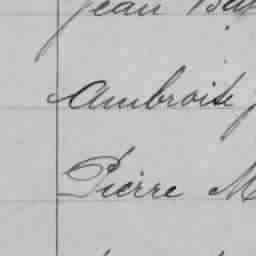 Jean
Ambroise
Pierre M